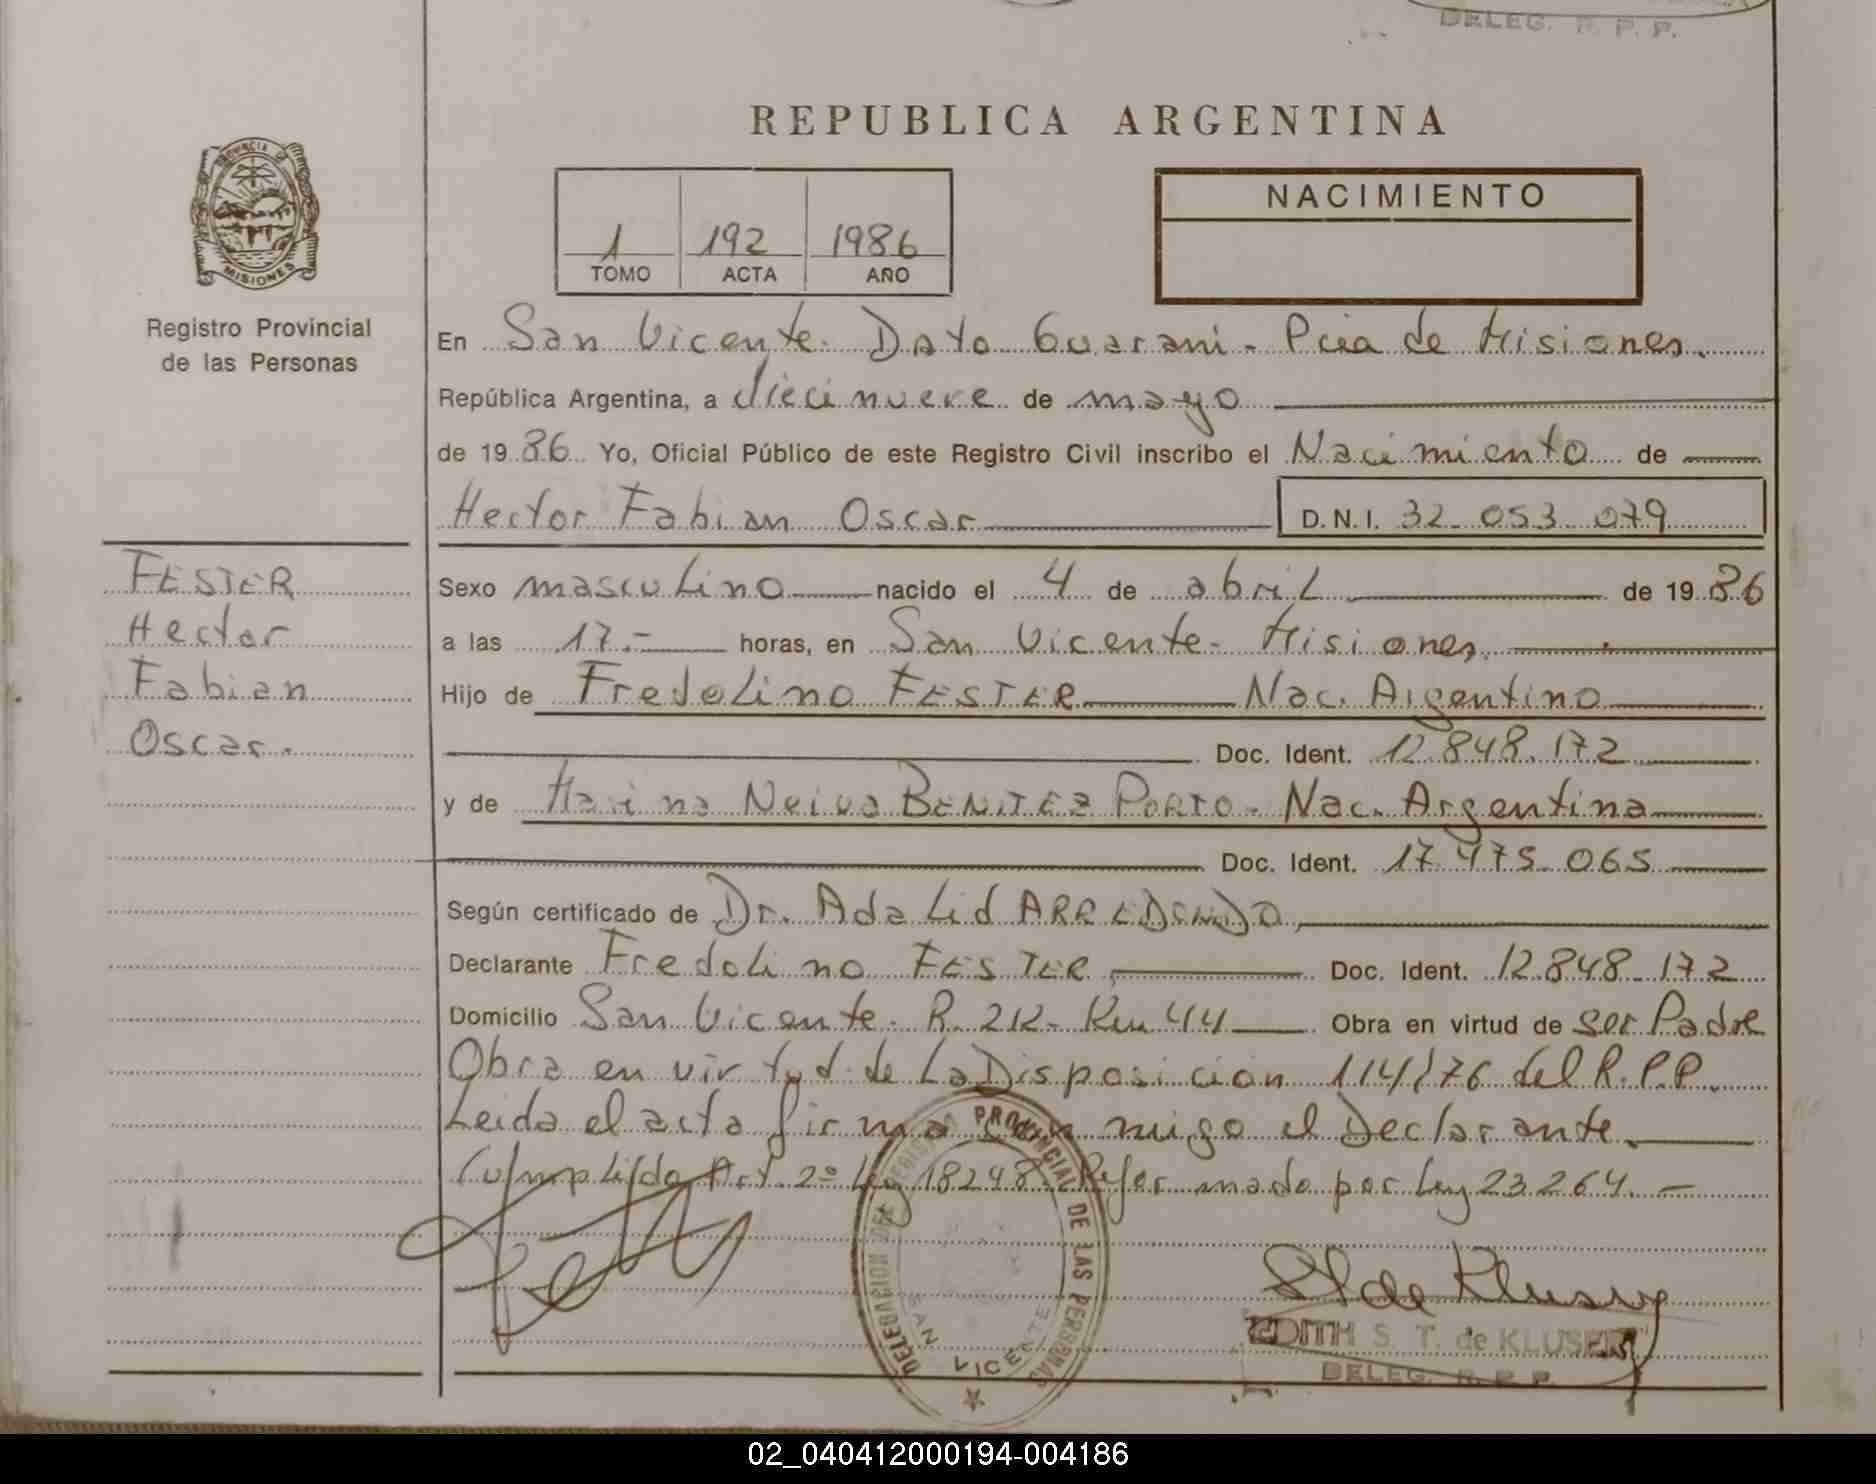 DELEG. R. P. P.
REPUBLICA ARGENTINA
PROVINCIA DE
MISIONES
Registro Provincial
de las Personas
1 192 1986
TOMO ACTA AÑO
NACIMIENTO
En San Vicente. Dpto Guarani - Pcia de Misiones.
República Argentina, a dieci nueve de mayo
de 19 86 Yo, Oficial Público de este Registro Civil inscribo el Nacimiento de
Hector Fabian Oscar D.N.I. 32.053.079
FESTER
Hector
Fabian
Oscar.
Sexo masculino nacido el 4 de abril de 19 86
a las 17.- horas, en San Vicente - Misiones.
Hijo de Fredolino FESTER Nac. Argentino
Doc. Ident. 12.848.172
y de Marina Neiva BENITEZ PORTO - Nac. Argentina
Doc. Ident. 17.475.065
Según certificado de Dr. Adalid ARREDONDO
Declarante Fredolino FESTER Doc. Ident. 12.848.172
Domicilio San Vicente - R. 212 - Km 44 Obra en virtud de ser Padre
Obra en virtud de La Disposicion 114/76 del R.P.P.
Leida el acta firma con migo el Declarante.
Cumplido Art. 2º Ley 18248. Refor mado por Ley 23.264. -
DELEGACION DEL REGISTRO PROVINCIAL DE LAS PERSONAS
SAN VICENTE
EDITH S. T. de KLUSER
DELEG. R. P. P.
02_040412000194-004186